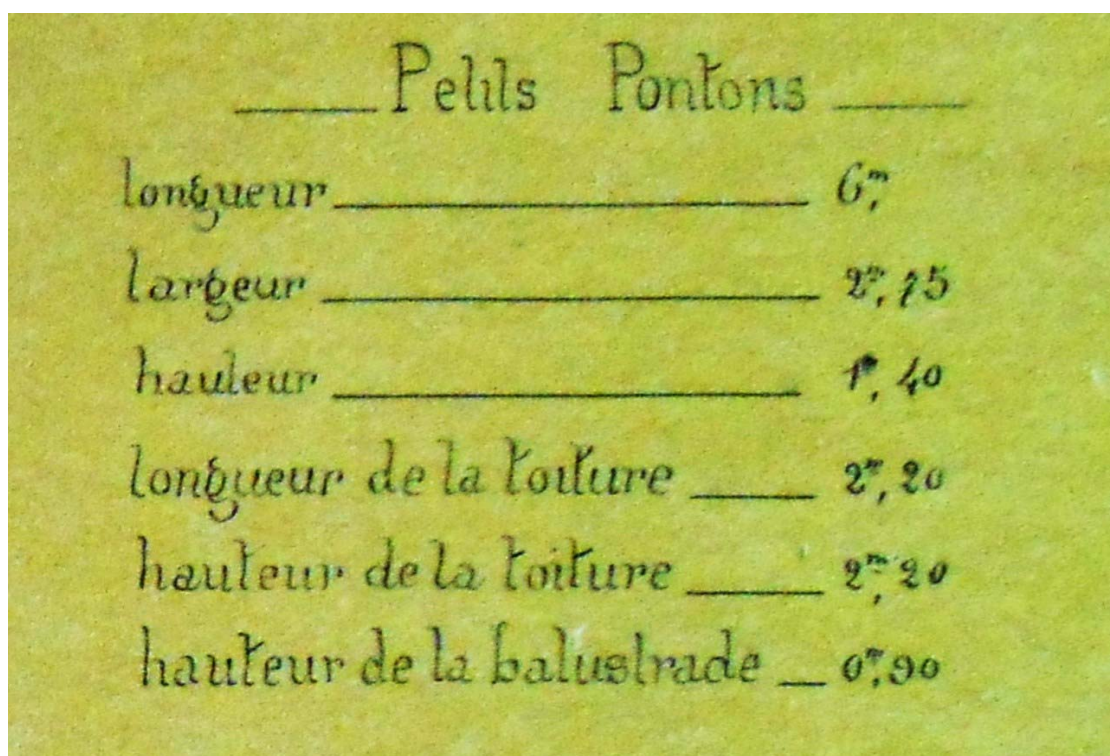 Petits Pontons
longueur 6m,
largeur 2m,15
hauteur 1m,40
longueur de la toiture 2m,20
hauteur de la toiture 2m,20
hauteur de la balustrade 0m,90